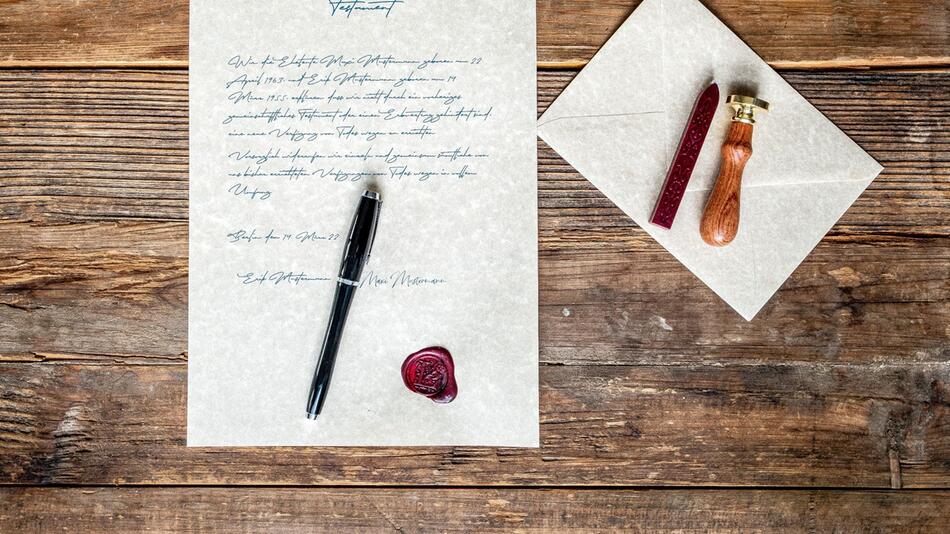 Testament
Wir die Eheleute Maxi Mustermann geboren am 22
April 1963 und Erik Mustermann geboren am 14
März 1955 erklären dass wir nicht durch ein vorheriges
gemeinschaftliches Testament oder einen Erbvertrag gehindert sind,
eine neue Verfügung von Todes wegen zu errichten
Vorsorglich widerrufen wir einzeln und gemeinsam sämtliche von
uns bisher errichteten Verfügungen von Todes wegen in vollem
Umfang
Berlin den 14 März 22
Erik Mustermann Maxi Mustermann